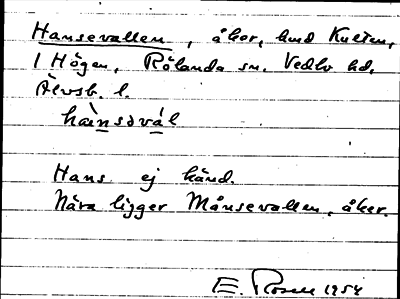 Hansevallen, åker, hmd Kulten,
1 Högen, Rölanda sn. Vedbo hd.
Älvsb. l.
hàinsəvál
Hans ej känd.
Nära ligger Månsevallen, åker.
E. Rosell 1954